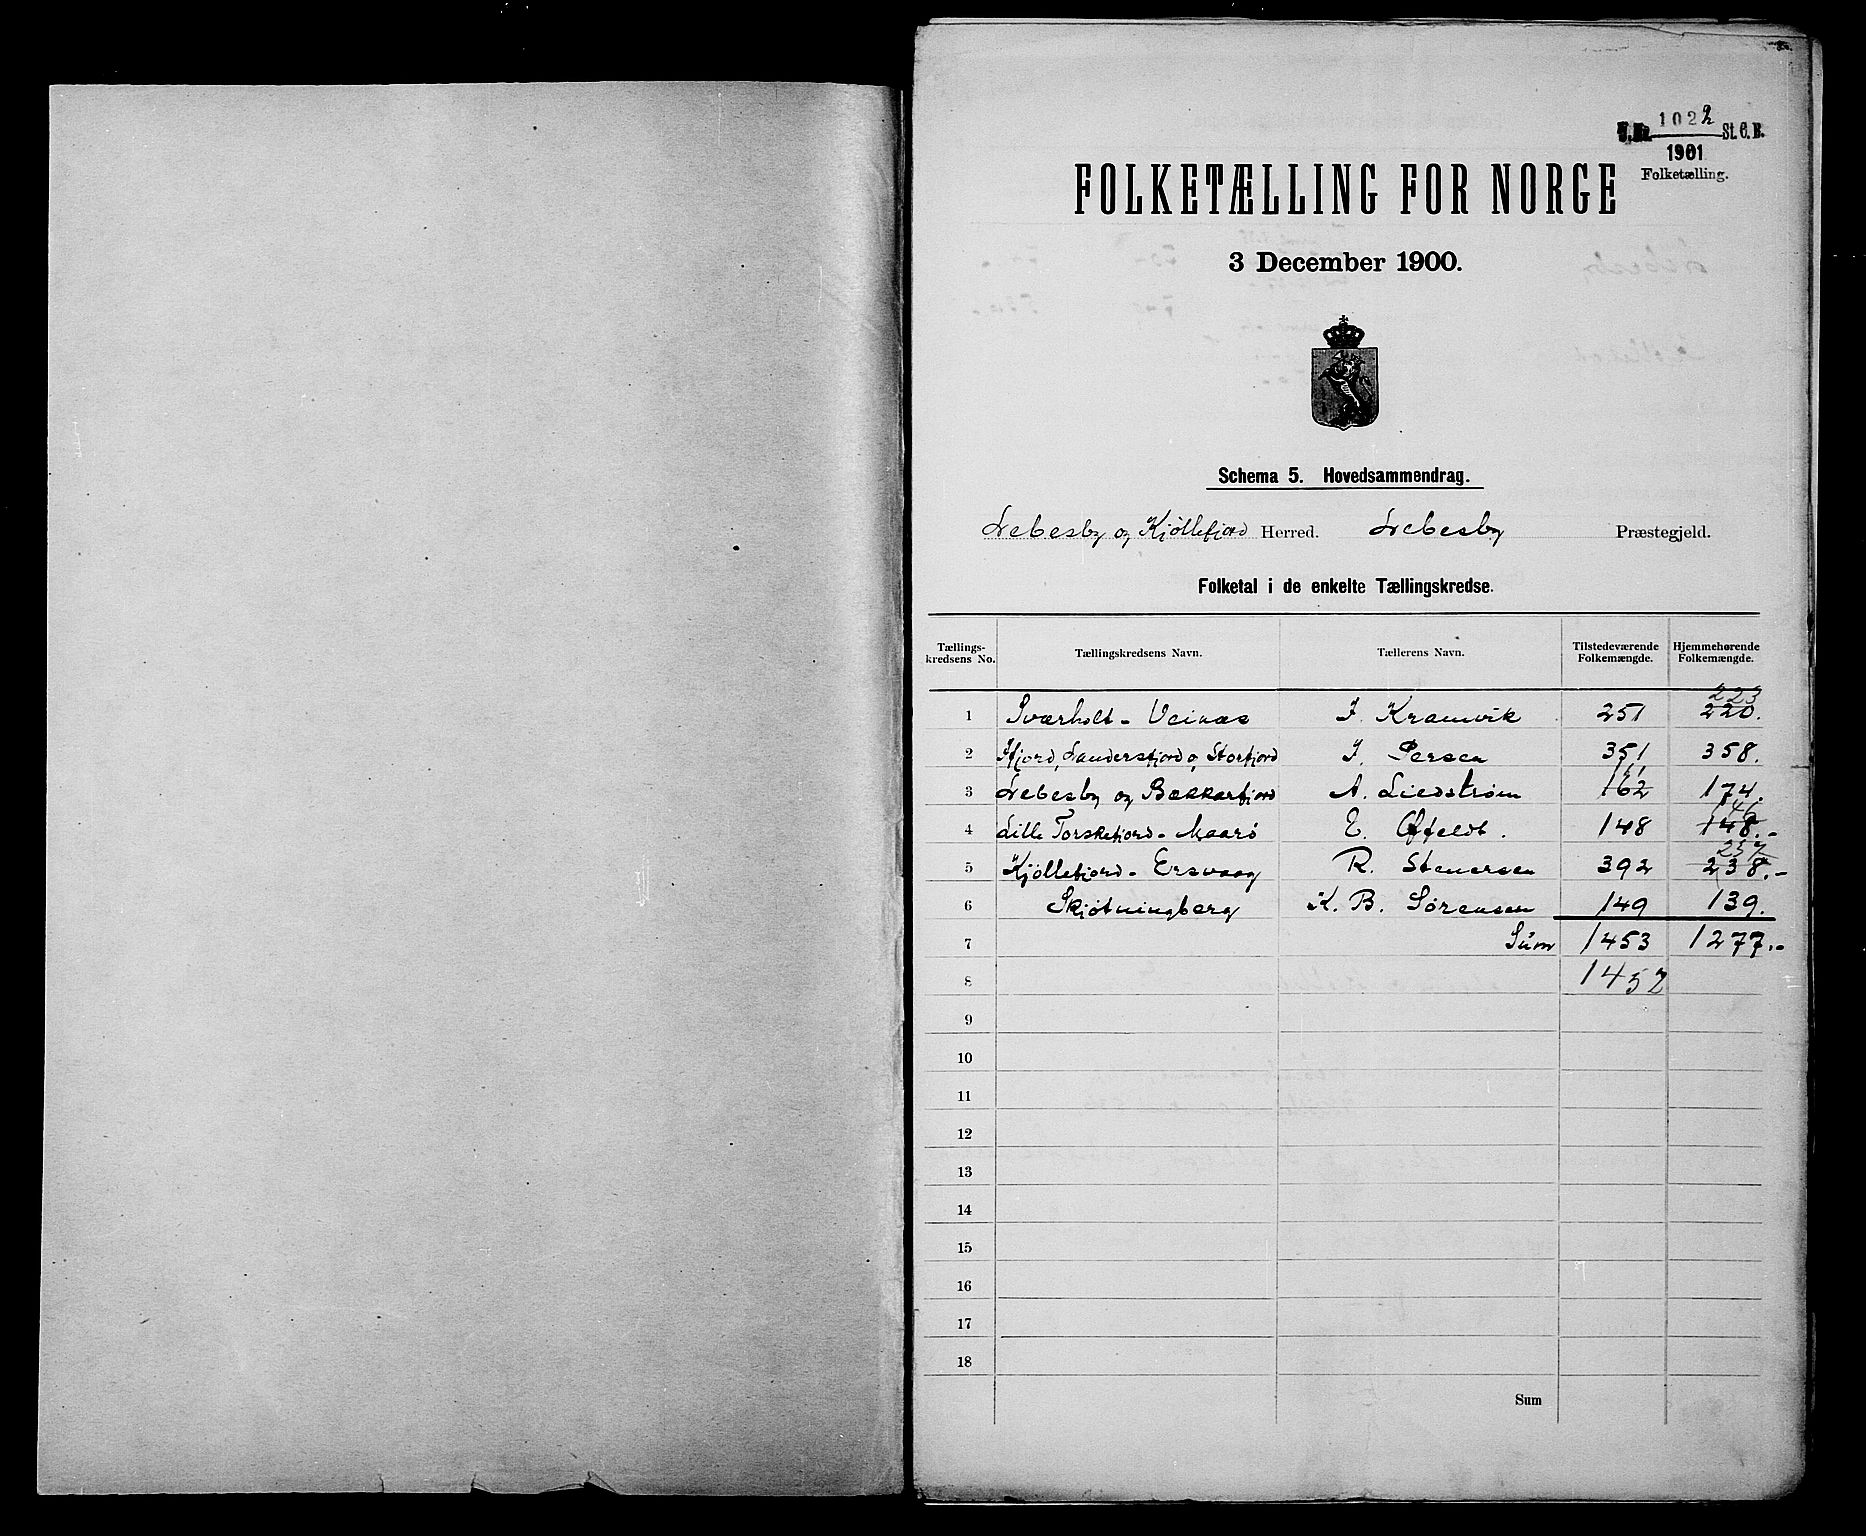 J.No. 1022 St. C. B.
1901
Folketælling.
FOLKETÆLLING FOR NORGE
3 December 1900.
Schema 5. Hovedsammendrag.
Lebesby og Kjøllefjord Herred. Lebesby Præstegjeld.
Folketal i de enkelte Tællingskredse.
Tællings-kredsens No. Tællingskredsens Navn. Tællerens Navn. Tilstedeværende Folkemængde. Hjemmehørende Folkemængde.
223
1 Sværholt - Veinæs J. Kramvik 251 220.
2 Ifjord, Landersfjord o, Storfjord J. Persen 351 358.
161
3 Lebesby og Bekkarfjord A. Liedstrøm 162 174.
146
4 Lille Torskefjord - Maarø E. 148 148.-
237
5 Kjøllefjord - Ersvaag R. Stenersen 392 238.-
6 Skjøtningberg K. B. Sørensen 149 139.
7 Sum 1453 1277.-
8 1452
9
10
11
12
13
14
15
16
17
18
Sum